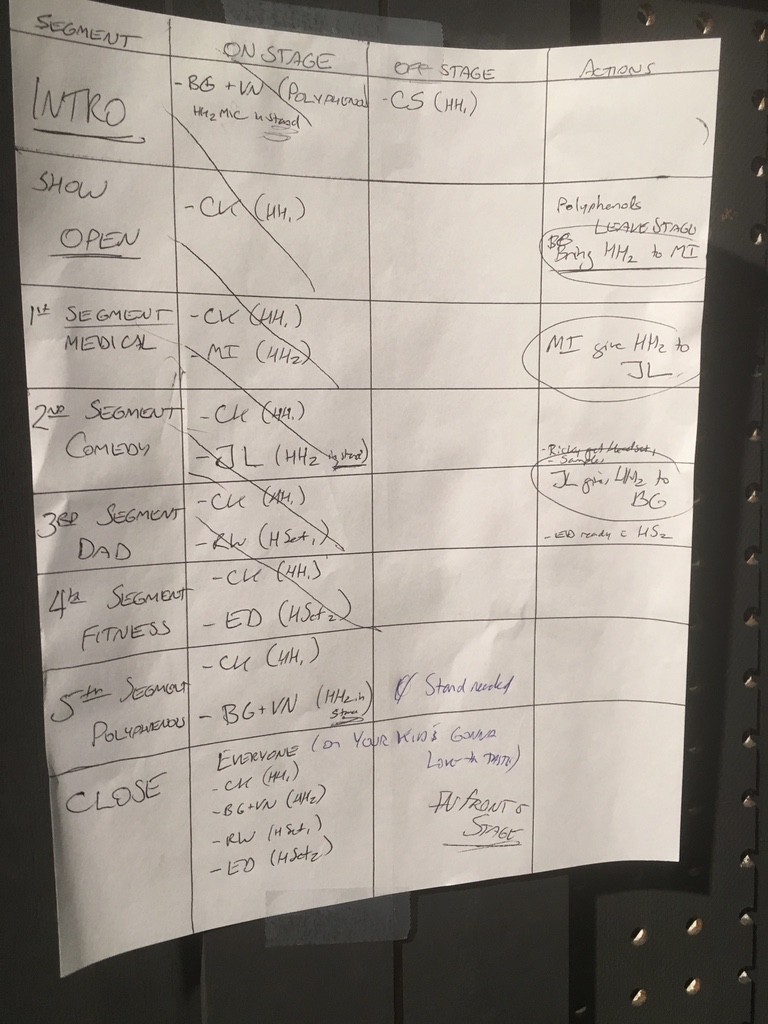 SEGMENT
ON STAGE
OFF STAGE
ACTIONS
INTRO
- BG + VN (POLYPHENOL
HH2 MIC in stand
- CS (HH1)
SHOW
OPEN
- CK (HH1)
Polyphenols
LEAVE STAGE
BG
Bring HH2 to MI
1st SEGMENT
MEDICAL
- CK (HH1)
- MI (HH2)
MI give HH2 to
JL
2ND SEGMENT
COMEDY
- CK (HH1)
- JL (HH2 in stand)
- Ricky get Headset1
JL give HH2 to
BG
3RD SEGMENT
DAD
- CK (HH1)
- RW (HSet1)
- ED ready c HS2
4th SEGMENT
FITNESS
- CK (HH1)
- ED (HSet2)
5th SEGMENT
POLYPHENOLS
- CK (HH1)
- BG+VN (HH2 in
stand)
Ø Stand needed
CLOSE
EVERYONE (on YOUR KID'S GONNA
LOVE
- CK (HH1)
- BG+VN (HH2)
- RW (HSet1)
- ED (HSet2)
IN FRONT o
STAGE